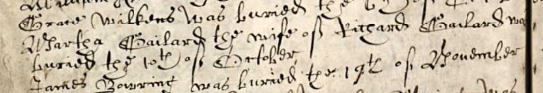 Grace Wilkens was buried the
Martha Gailard the wife of Richard Gailard was
buried the 10th of October
James Bowring was buried the 19th of November